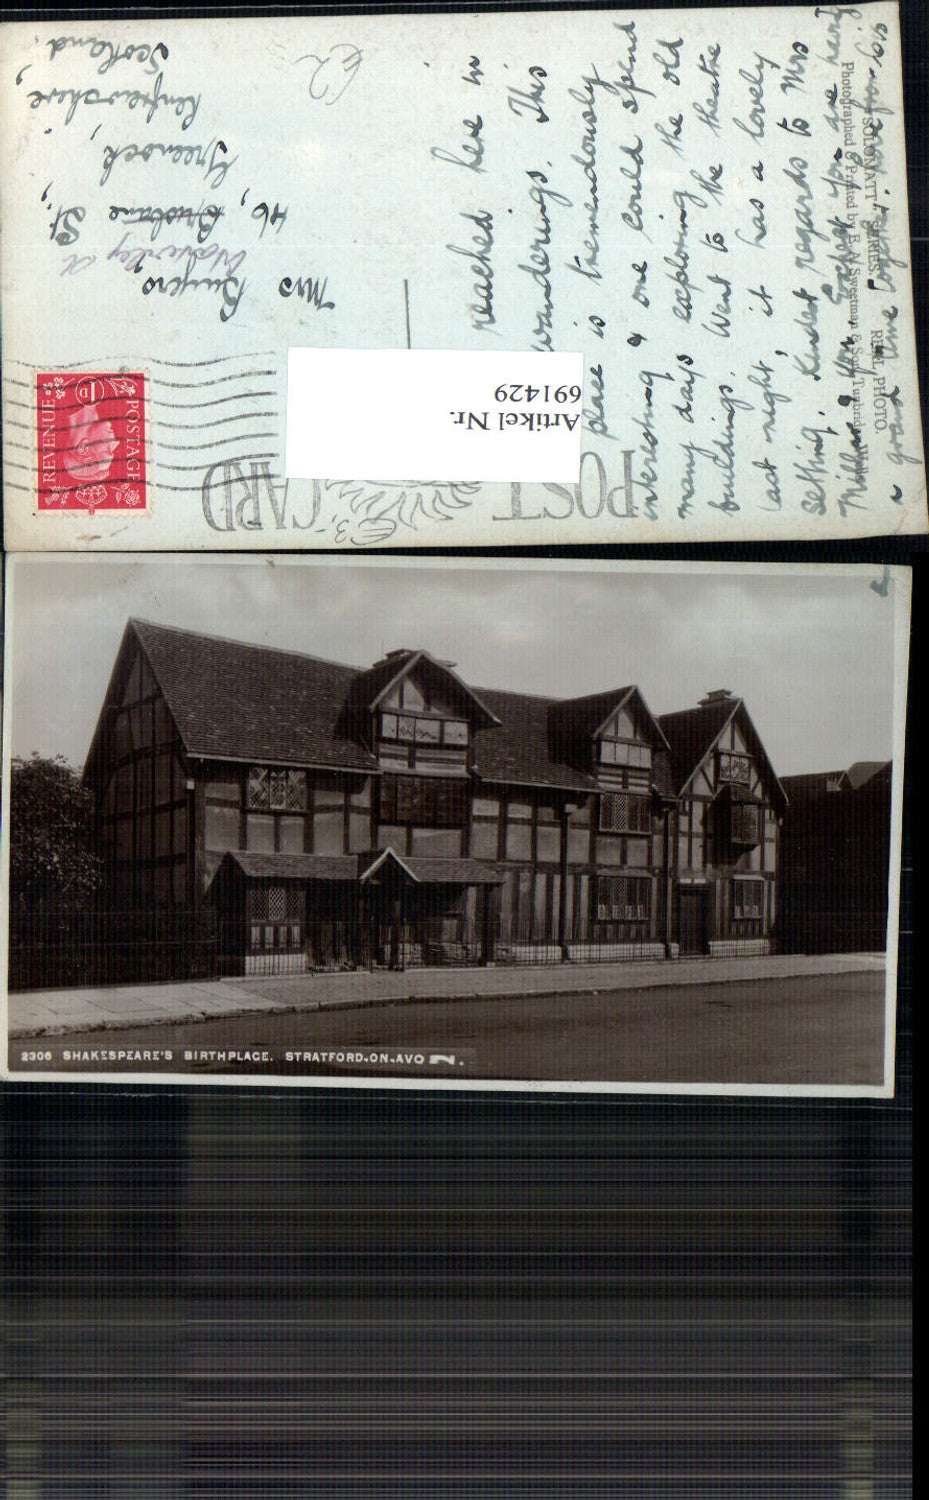 POST CARD
"SOLOGNATT" SERIES. REAL PHOTO.
Photographed & Printed by E. A. Sweetman & Son, Tunbridge
reached here in
wanderings. This
place is tremendously
interesting & one could spend
many days exploring the old
buildings. Went to the theatre
last night, it has a lovely
setting. Kindest regards to Mrs
Millar & you. I hope you are having
a grand time together.
Artikel Nr.
691429
POSTAGE
REVENUE
1D
Mrs Bunyers,
Waverley
46, Brisbane St.,
Greenock,
Renfrewshire,
Scotland.
62
2306 SHAKESPEARE'S BIRTHPLACE. STRATFORD.ON.AVON.